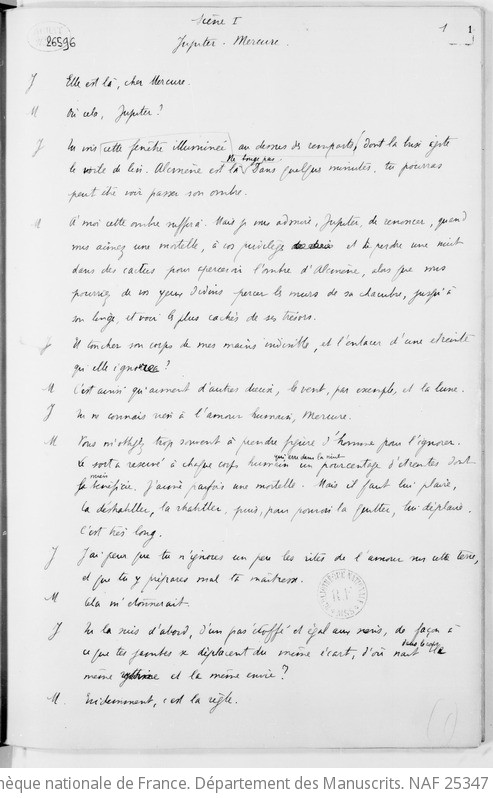 Scène I
1 1
26596
Jupiter - Mercure.
J Elle est là, cher Mercure.
M Où cela, Jupiter ?
J Tu vois cette fenêtre illuminée au dessus des remparts, dont la brise agite
Ne bouge pas.
le voile de lin. Alcmène est là. Dans quelques minutes, tu pourras
peut être voir passer son ombre.
M A moi cette ombre suffira. Mais je vous admire, Jupiter, de renoncer, quand
vous aimez une mortelle, à vos privilèges et de perdre une nuit
dans des cactus pour apercevoir l'ombre d'Alcmène, alors que vous
pourriez de vos yeux divins percer les murs de sa chambre, jusqu'à
son linge, et voir les plus cachés de ses trésors.
J Et toucher son corps de mes mains invisibles, et l'enlacer d'une étreinte
qu'elle ignorera ?
M C'est ainsi qu'aiment d'autres dieux, le vent, par exemple, et la lune.
J Tu ne connais rien à l'amour humain, Mercure.
M Vous m'obligez trop souvent à prendre figure d'homme pour l'ignorer.
qui erre dans la nuit
Le sort a réservé à chaque corps humain un pourcentage d'étreintes dont
je bénéficie. J'aime parfois une mortelle. Mais il faut lui plaire,
la déshabiller, la rhabiller, puis, pour pouvoir la quitter, lui déplaire.
C'est très long.
J J'ai peur que tu n'ignores un peu les rites de l'amour sur cette terre,
et que tu y prépares mal ta maîtresse.
M Cela m'étonnerait.
J Tu la suis d'abord, d'un pas étoffé et égal aux siens, de façon à
ce que tes jambes se déplacent du même écart, d'où naît
la même et la même envie ?
M. Evidemment, c'est la règle.
BIBLIOTHEQUE NATIONALE
R F
hèque nationale de France. Département des Manuscrits. NAF 25347